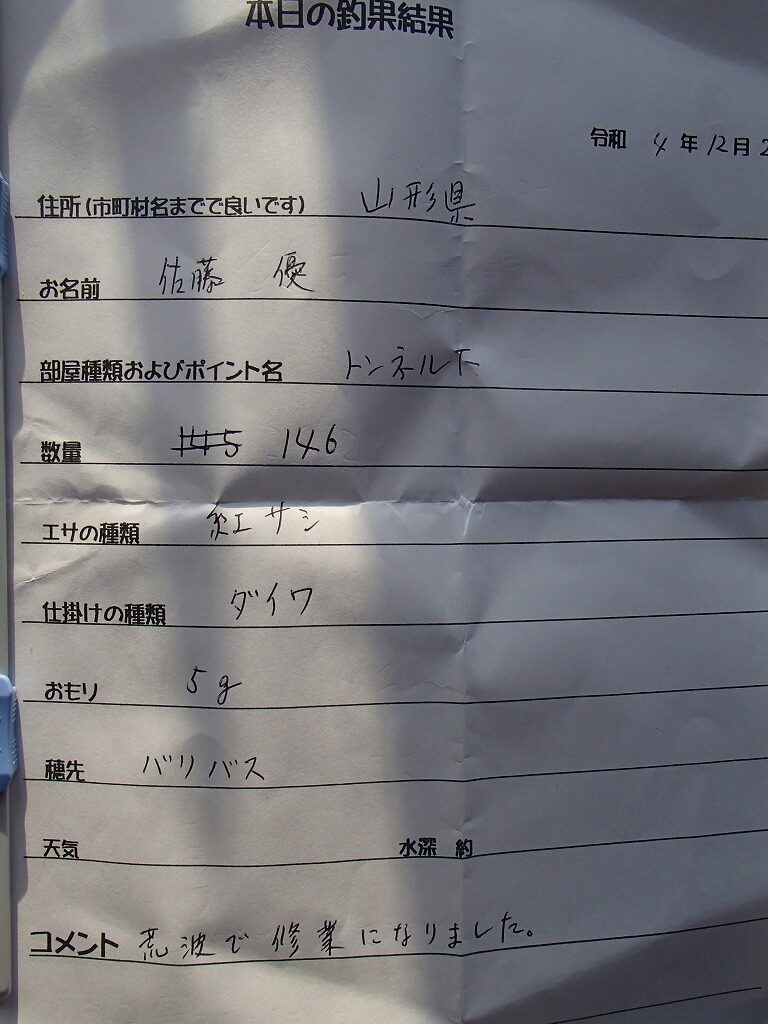 本日の釣果結果
令和 4年12月2
住所(市町村名までで良いです) 山形県
お名前 佐藤 優
部屋種類およびポイント名 トンネル下
数量 146
エサの種類 紅サシ
仕掛けの種類 ダイワ
おもり 5g
穂先 バリバス
天気 水深 約
コメント 荒波で修業になりました。